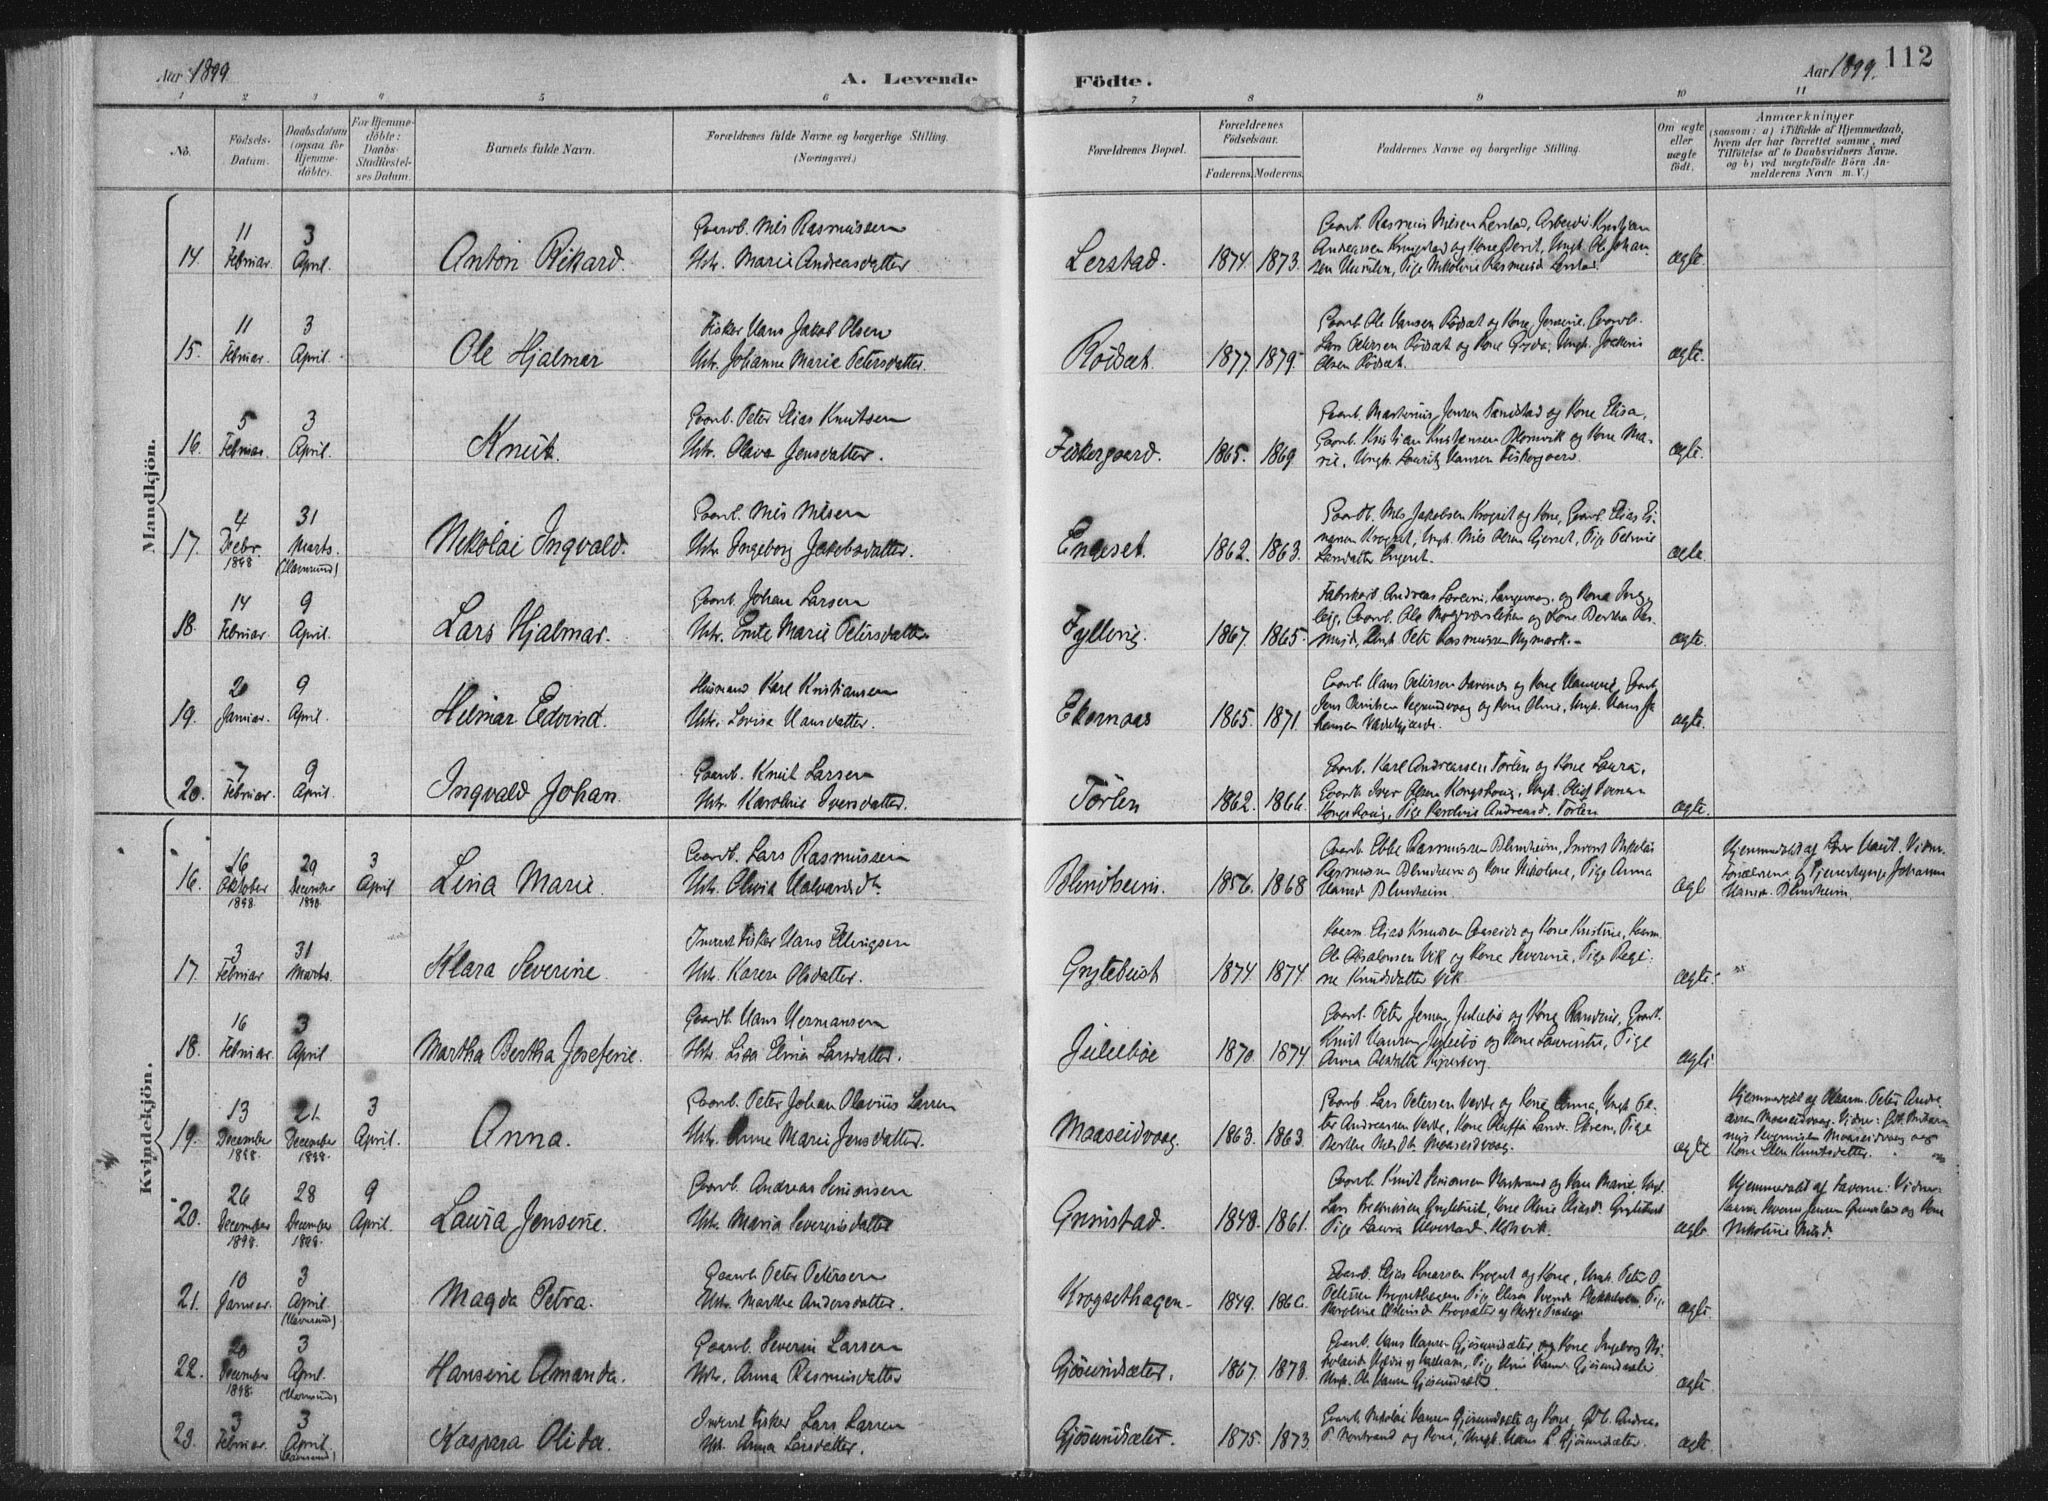 Aar 1899
A. Levende
Födte.
Aar 1899.
112
1 2 3 4 5 6 7 8 9 10 11
No.
Födsels-
Datum.
Daabsdatum
(ogsaa for
Hjemme-
döbte).
For Hjemme-
döbte:
Daabs-
Stadfæstel-
ses Datum.
Barnets fulde Navn.
Forældrenes fulde Navne og borgerlige Stilling.
(Næringsvei.)
Forældrenes Bopæl.
Forældrenes
Födselsaar.
Faderens. Moderens.
Faddernes Navne og borgerlige Stilling.
Om ægte
eller
uægte
födt.
Anmærkninger
(saasom: a) i Tilfælde af Hjemmedaab,
hvem der har forrettet samme, med
Tilföielse af to Daabsvidners Navne.
og b) ved uægtefödte Börn An-
melderens Navn m. V.)
Mandkjön.
14. 11 Februar. 3 April. Anton Rikard. Gaardb. Nils Rasmussen
Hstr. Marie Andreasdatter
Lerstad. 1874. 1873.
Gaardb. Rasmus Nilsen Lerstad, Arbeider Kristian
Andreassen Krugstad og Kone Berit, Ungk. Ole Johan-
sen, Pige Nikoline Rasmusd. Lerstad.
ægte.
15. 11 Februar. 3 April. Ole Hjalmar Fisker Hans Jakob Olsen
Hstr. Johanne Marie Petersdatter.
Rödsæt. 1877. 1879.
Gaardb. Ole Hansen Rödsæt og Kone Jensine. Gaardb.
Lars Petersen Rödsæt og Kone, Ungk.
Olsen Rödsæt.
ægte.
16. 5 Februar. 3 April. Knut. Gaardb. Peter Elias Knutsen
Hstr. Olava Jensdatter.
Fiskergaard. 1865. 1869
Gaardb. Martinus Jensen Tandstad og Kone Elisa,
Gaardb. Kristian Kristensen Blomvik og Kone Ma-
rie, Ungk. Lauritz Hansen Fiskergaard.
ægte.
17. 4 Decbr. 1898 31 Marts. (Havnsund) Nikolai Ingvald. Gaardb. Nils Nilsen
Hstr. Ingeborg Jakobsdatter.
Engeset. 1862. 1863.
Gaardb. Nils Jakobsen Krogset og Kone, Gaardb. Elias Ei-
narsen Krogset, Ungk. Nils Olsen Gjerset, Pige Petrine
Larsdatter Engeset.
ægte
18. 14 Februar. 9 April. Lars Hjalmar. Gaardb. Johan Larsen
Hstr. Ente Marie Petersdatter
Fylling. 1867. 1865.
Fabrikeier Andreas, Langevaag, og Kone Inge-
leiv, Gaardb. Ole og Kone Bertha Ras-
musd., Ungk. Peter Rasmussen Nymark.
ægte.
19. 20 Januar. 9 April. Hilmar Edvind. Husmand Karl Kristiansen
Hstr. Lovisa Hansdatter.
Ekornaas 1865. 1871.
Gaardb. Hans Petersen og Kone, Gaardb.
Jens og Kone Oline, Ungk. Hans Jo-
hansen.
ægte.
20. 7 Februar. 9 April. Ingvald Johan. Gaardb. Knut Larsen
Hstr. Karoline Iversdatter.
Törlen 1862. 1866.
Gaardb. Karl Andreassen Törlen og Kone Laura,
Gaardb. Iver Olsen Kongshaug, Ungk. Oluf Iversen
Kongshaug, Pige Karoline Andreasd. Törlen
ægte.
Kvindekjön.
16. 16 Oktober 1898. 29 December 1898. 3 April Lina Marie. Gaardb. Lars Rasmussen
Hstr. Olivia Halvardsdtr.
Blindheim. 1856. 1868
Gaardb. Ebbe Rasmussen Blindheim, Inderst Nikolai
Rasmussen Blindheim og Kone Nikoline, Pige Anna
Hansd. Blindheim.
ægte
Hjemmedöbt af. Vidner:
Forældrene og Johanne
Hansd. Blindheim.
17. 3 Februar 31 Marts. Klara Severine. Inderst Fisker Hans Ellingsen
Hstr. Karen Olsdatter.
Grytebust 1874. 1874.
Kaarm. Elias Knudsen Aaseide og Kone Kristine, Kaarm.
Ole Absalonsen Vik og Kone Severine, Pige Regi-
ne Knudsdatter Vik.
ægte.
18. 16 Februar. 3 April Martha Bertha Josefine. Gaardb. Hans Hermansen
Hstr. Lisa Elvia Larsdatter.
Juliebøe 1870. 1874.
Gaardb. Peter Jensen Juliebö og Kone Randine, Gaardb.
Knut Hansen Juliebö og Kone Laurentse, Pige
Anna.
ægte.
19. 13 December 1898. 21. December 1898. 3 April. Anna. Gaardb. Peter Johan Olavius Larsen
Hstr. Anne Marie Jensdatter.
Maaseidvaag. 1863. 1863.
Gaardb. Lars Petersen og Kone Anna, Ungk. Pe-
ter Andreassen, Kone, Pige
Berthe Maaseidvaag.
ægte
Hjemmedöbt af Kaarm. Peter Andre-
asen Maaseidvaag. Vidner:
Severinsen Maaseidvaag og
Kone Elen Knutsdatter.
20. 26 December 1898. 28 December 1898. 9 April. Laura Jensine. Gaardb. Andreas Simonsen
Hstr. Maria Severinsdatter
Grimstad. 1848. 1861.
Gaardb. Knut Simonsen og Kone Marie, Ungk.
Lars Fredriksen Grytebust, Kone Oline Eliasd. Grytebust
Pige Laura.
ægte.
Hjemmedöbt af Faderen: Vidner:
Jensen Grimstad og Kone
Nikoline.
21. 10 Januar. 3 April (Havnsund) Magda Petra. Gaardb. Peter Petersen
Hstr. Marthe Andersdatter.
Krogsethagen. 1849. 1860.
Gaardb. Elias Einarsen Krogset og Kone, Ungk. Peter P.
Petersen Krogsethagen, Pige, Pige
Karoline.
ægte.
22. 20 December 1898. 3 April. (Havnsund) Hansine Amanda. Gaardb. Severin Larsen
Hstr. Anna Rasmusdatter
Gjösundsæter. 1867. 1873.
Gaardb. Hans Hansen Gjösundsæter, og Kone Ingeborg Ni-
kolaisd., Pige Gjösundsæter
Ungk. Ole Hansen Gjösundsæter.
ægte.
23. 3 Februar. 3 April (Havnsund) Kaspara Olida. Inderst Fisker Lars Larsen
Hstr. Anna Larsdatter.
Gjösundsæter. 1875. 1873.
Gaardb. Nikolai Hansen Gjösundsæter og Kone, Gdb. Andreas
P. Nordstrand og Kone, Ungk. Hans L. Gjösundsæter.
ægte.